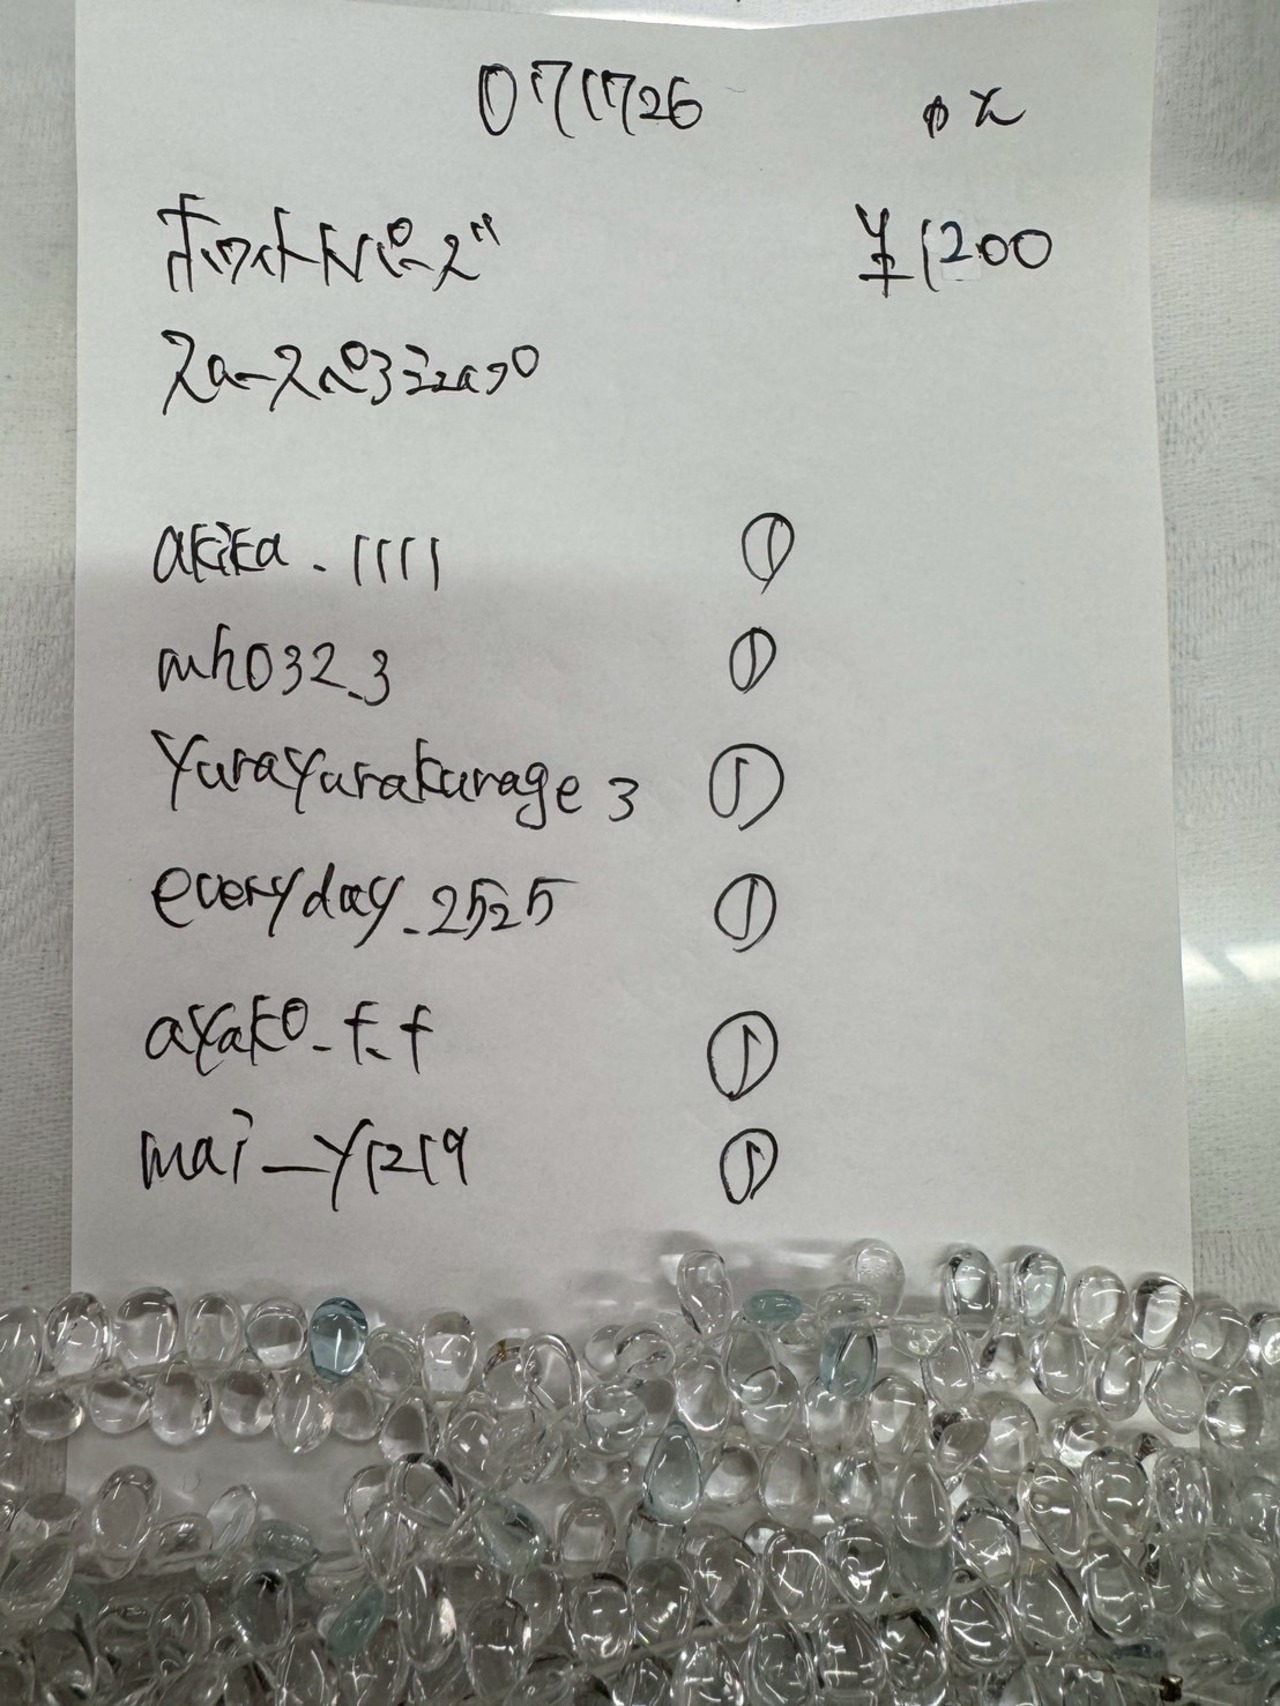 071726
ホワイトトパーズ ¥1200
akika.1111 ①
mh032_3 ①
yurayurakurage3 ①
everyday_2525 ①
ayako_f_f ①
mai_y1219 ①